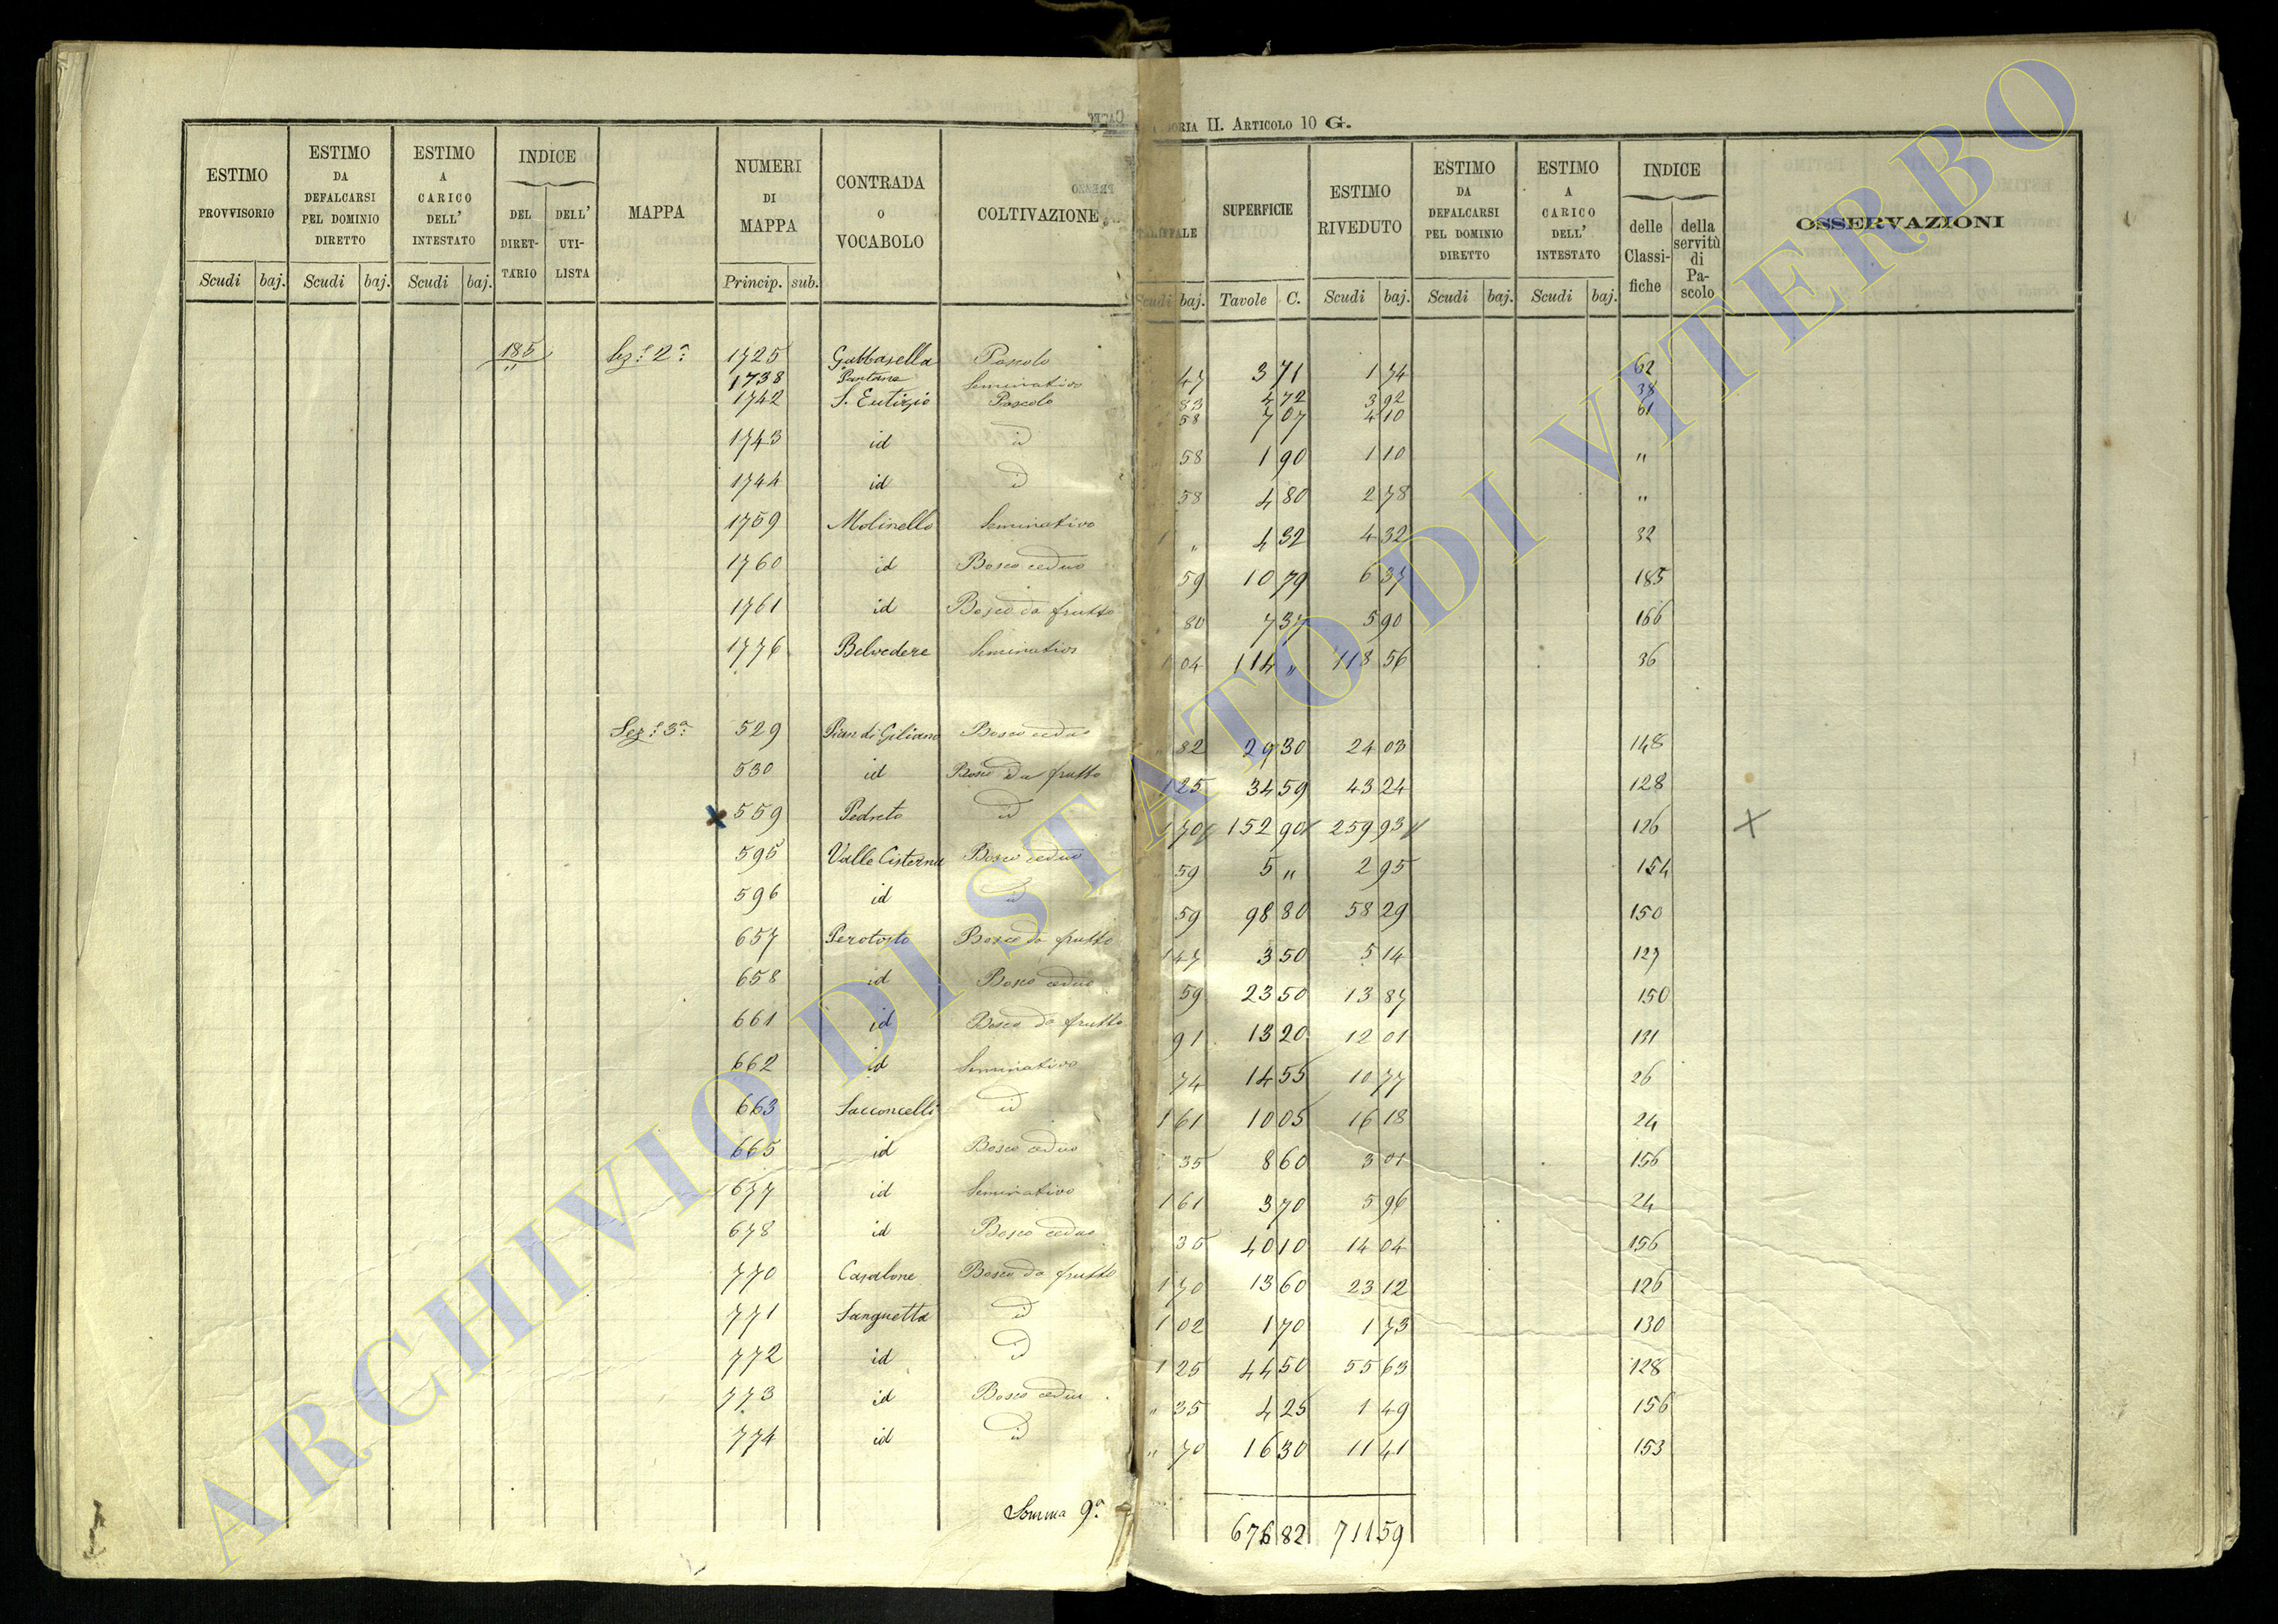 CATEGORIA II. ARTICOLO 10 G.
ESTIMO PROVVISORIO Scudi baj. | ESTIMO DA DEFALCARSI PEL DOMINIO DIRETTO Scudi baj. | ESTIMO A CARICO DELL' INTESTATO Scudi baj. | INDICE DEL DIRETTARIO DELL' UTILISTA | MAPPA | NUMERI DI MAPPA Princip. sub. | CONTRADA O VOCABOLO | COLTIVAZIONE | TARIFFALE Scudi baj. | SUPERFICIE Tavole C. | ESTIMO RIVEDUTO Scudi baj. | ESTIMO DA DEFALCARSI PEL DOMINIO DIRETTO Scudi baj. | ESTIMO A CARICO DELL' INTESTATO Scudi baj. | INDICE delle Classifiche della servitù di Pascolo | OSSERVAZIONI
185 " Sez.e 2a 1725 Gabbasella Pascolo 47 3 71 1 74 62
1738 Pantane Seminativo 83 4 72 3 92 38
1742 S. Eutizio Pascolo 58 7 07 4 10 61
1743 id id 58 1 90 1 10 "
1744 id id 58 4 80 2 78 "
1759 Molinello Seminativo 1 " 4 32 4 32 32
1760 id Bosco ceduo 59 10 79 6 37 185
1761 id Bosco da frutto 80 7 37 5 90 166
1776 Belvedere Seminativo 1 04 114 " 118 56 36
Sez.e 3a 529 Pian di Giliano Bosco ceduo " 82 29 30 24 03 148
530 id Bosco da frutto 1 25 34 59 43 24 128
x 559 Pedreto id 1 70 152 90 259 93 126 x
595 Valle Cisterna Bosco ceduo " 59 5 " 2 95 154
596 id id " 59 98 80 58 29 150
657 Perotosto Bosco da frutto 1 47 3 50 5 14 127
658 id Bosco ceduo 59 23 50 13 87 150
661 id Bosco da frutto 91 13 20 12 01 131
662 id Seminativo 74 14 55 10 77 26
663 Sacconcelli id 1 61 10 05 16 18 24
665 id Bosco ceduo 35 8 60 3 01 156
677 id Seminativo 1 61 3 70 5 96 24
678 id Bosco ceduo 35 40 10 14 04 156
770 Casalone Bosco da frutto 1 70 13 60 23 12 126
771 Sanguetta id 1 02 1 70 1 73 130
772 id id 1 25 44 50 55 63 128
773 id Bosco ceduo " 35 4 25 1 49 156
774 id id " 70 16 30 11 41 153
Somma 9a 676 82 711 59
ARCHIVIO DI STATO DI VITERBO